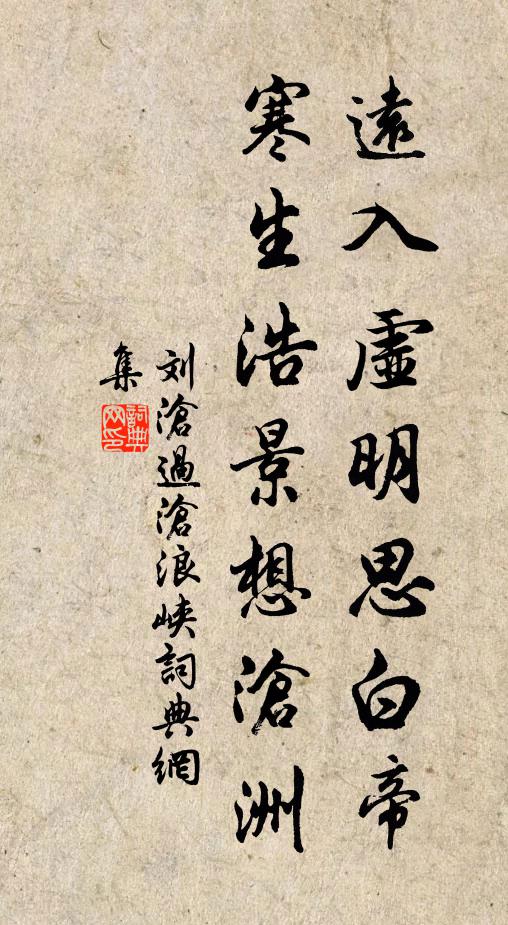 遠入虛明思白帝
寒生浩景想滄洲
刘滄過滄浪峽詞典網
集
詞典
网印